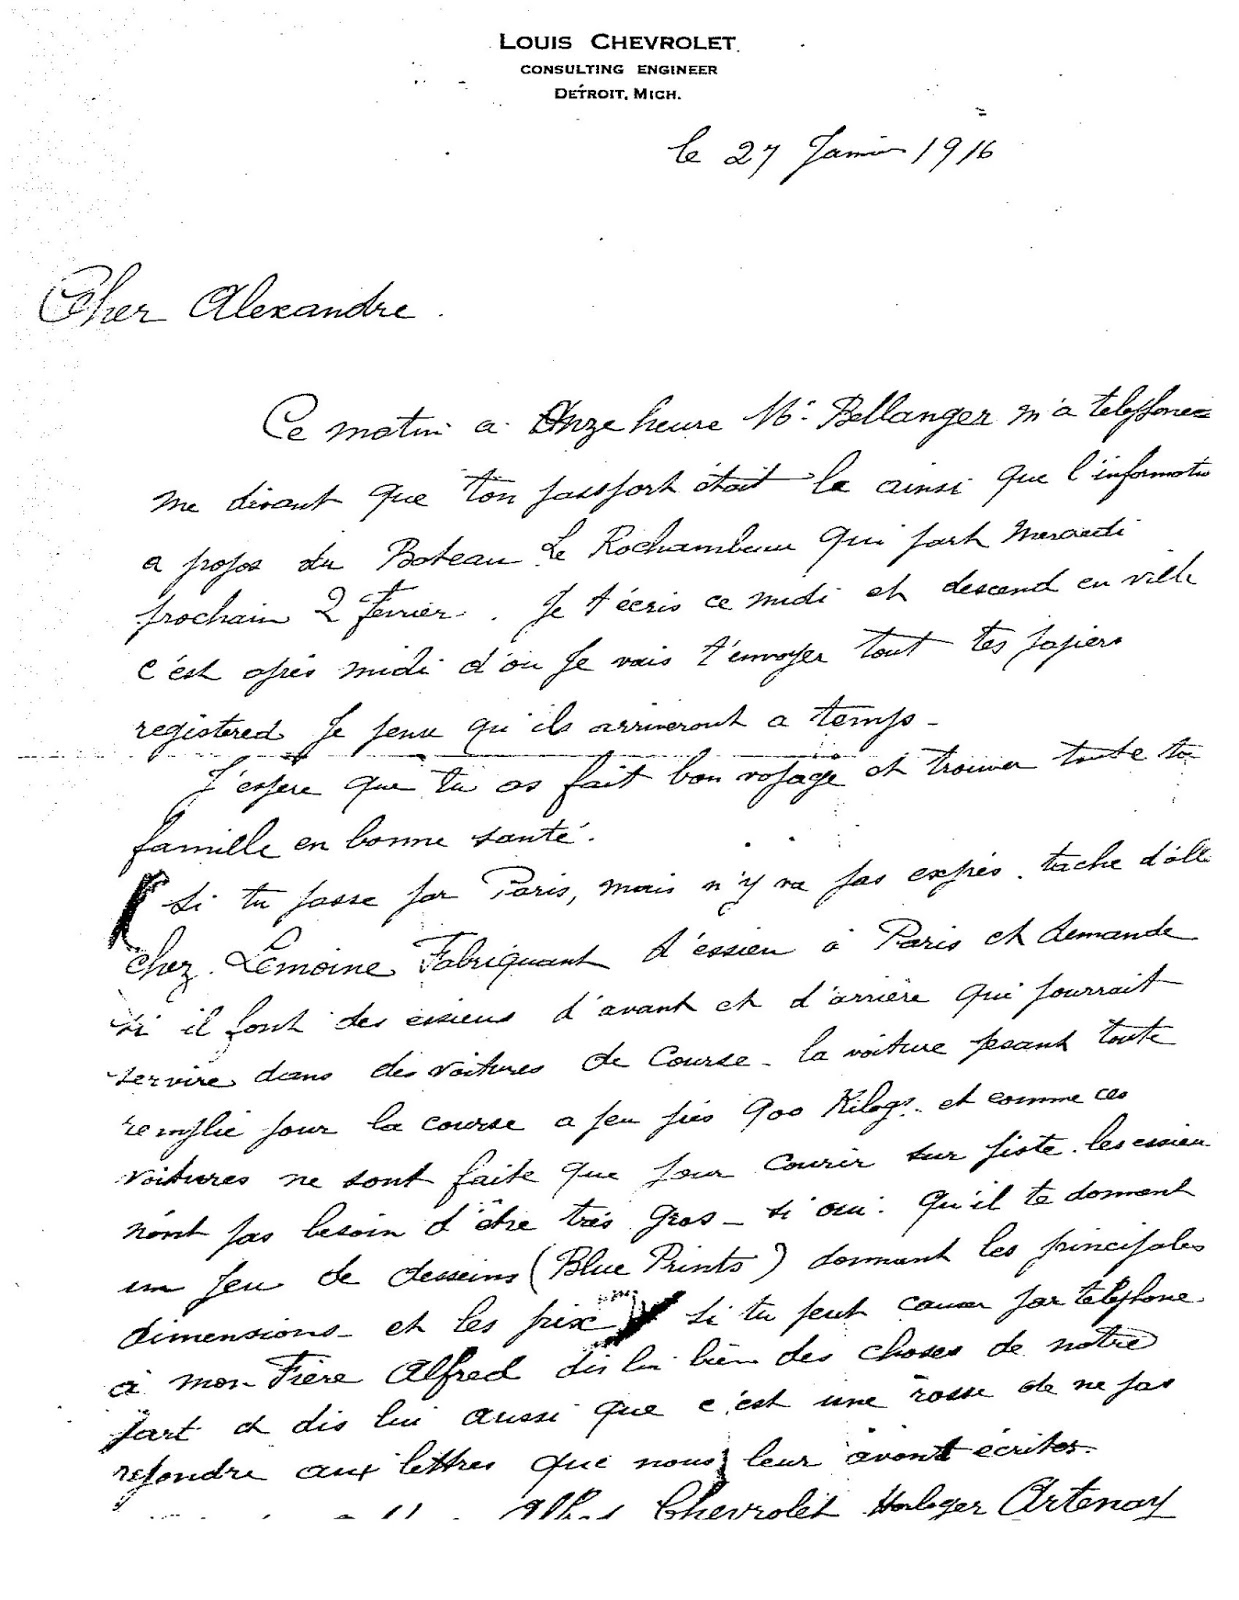 LOUIS CHEVROLET
CONSULTING ENGINEER
DETROIT, MICH.
le 27 Janvier 1916
Cher Alexandre.
Ce matin a Onze heure Mr. Bellanger m'a telephoner
me disant que ton passport était la ainsi que l'informatio
a propos du Bateau Le Rochambeau qui part Mercredi
prochain 2 Fevrier. Je t'écris ce midi et descend en ville
c'est après midi d'ou Je vais t'envoyer tout tes papiers
registered Je pense qu'ils arriveront a temps -
J'espere que tu as fait bon voyage et trouver toute ta
famille en bonne santé.
Si tu passe par Paris, mais n'y va pas exprès. tache d'alle
chez Lemoine Fabriquant d'essieu à Paris et demande
si il font des essieus d'avant et d'arrière qui pourrait
servire dans des voitures de Course - la voiture pesant toute
remplie pour la course a peu près 900 Kilogs. et comme ces
voitures ne sont faite que pour courir sur piste. les essieu
n'ont pas besoin d'être très gros - si oui. qu'il te donnent
un jeu de desseins (Blue Prints) donnant les principales
dimensions - et les prix si tu peut causer par telephone
à mon Frère Alfred dis lui bien des choses de notre
part et dis lui aussi que c'est une rosse de ne pas
repondre aux lettres que nous leur avont écrites
Alfred Chevrolet Horloger Artenay